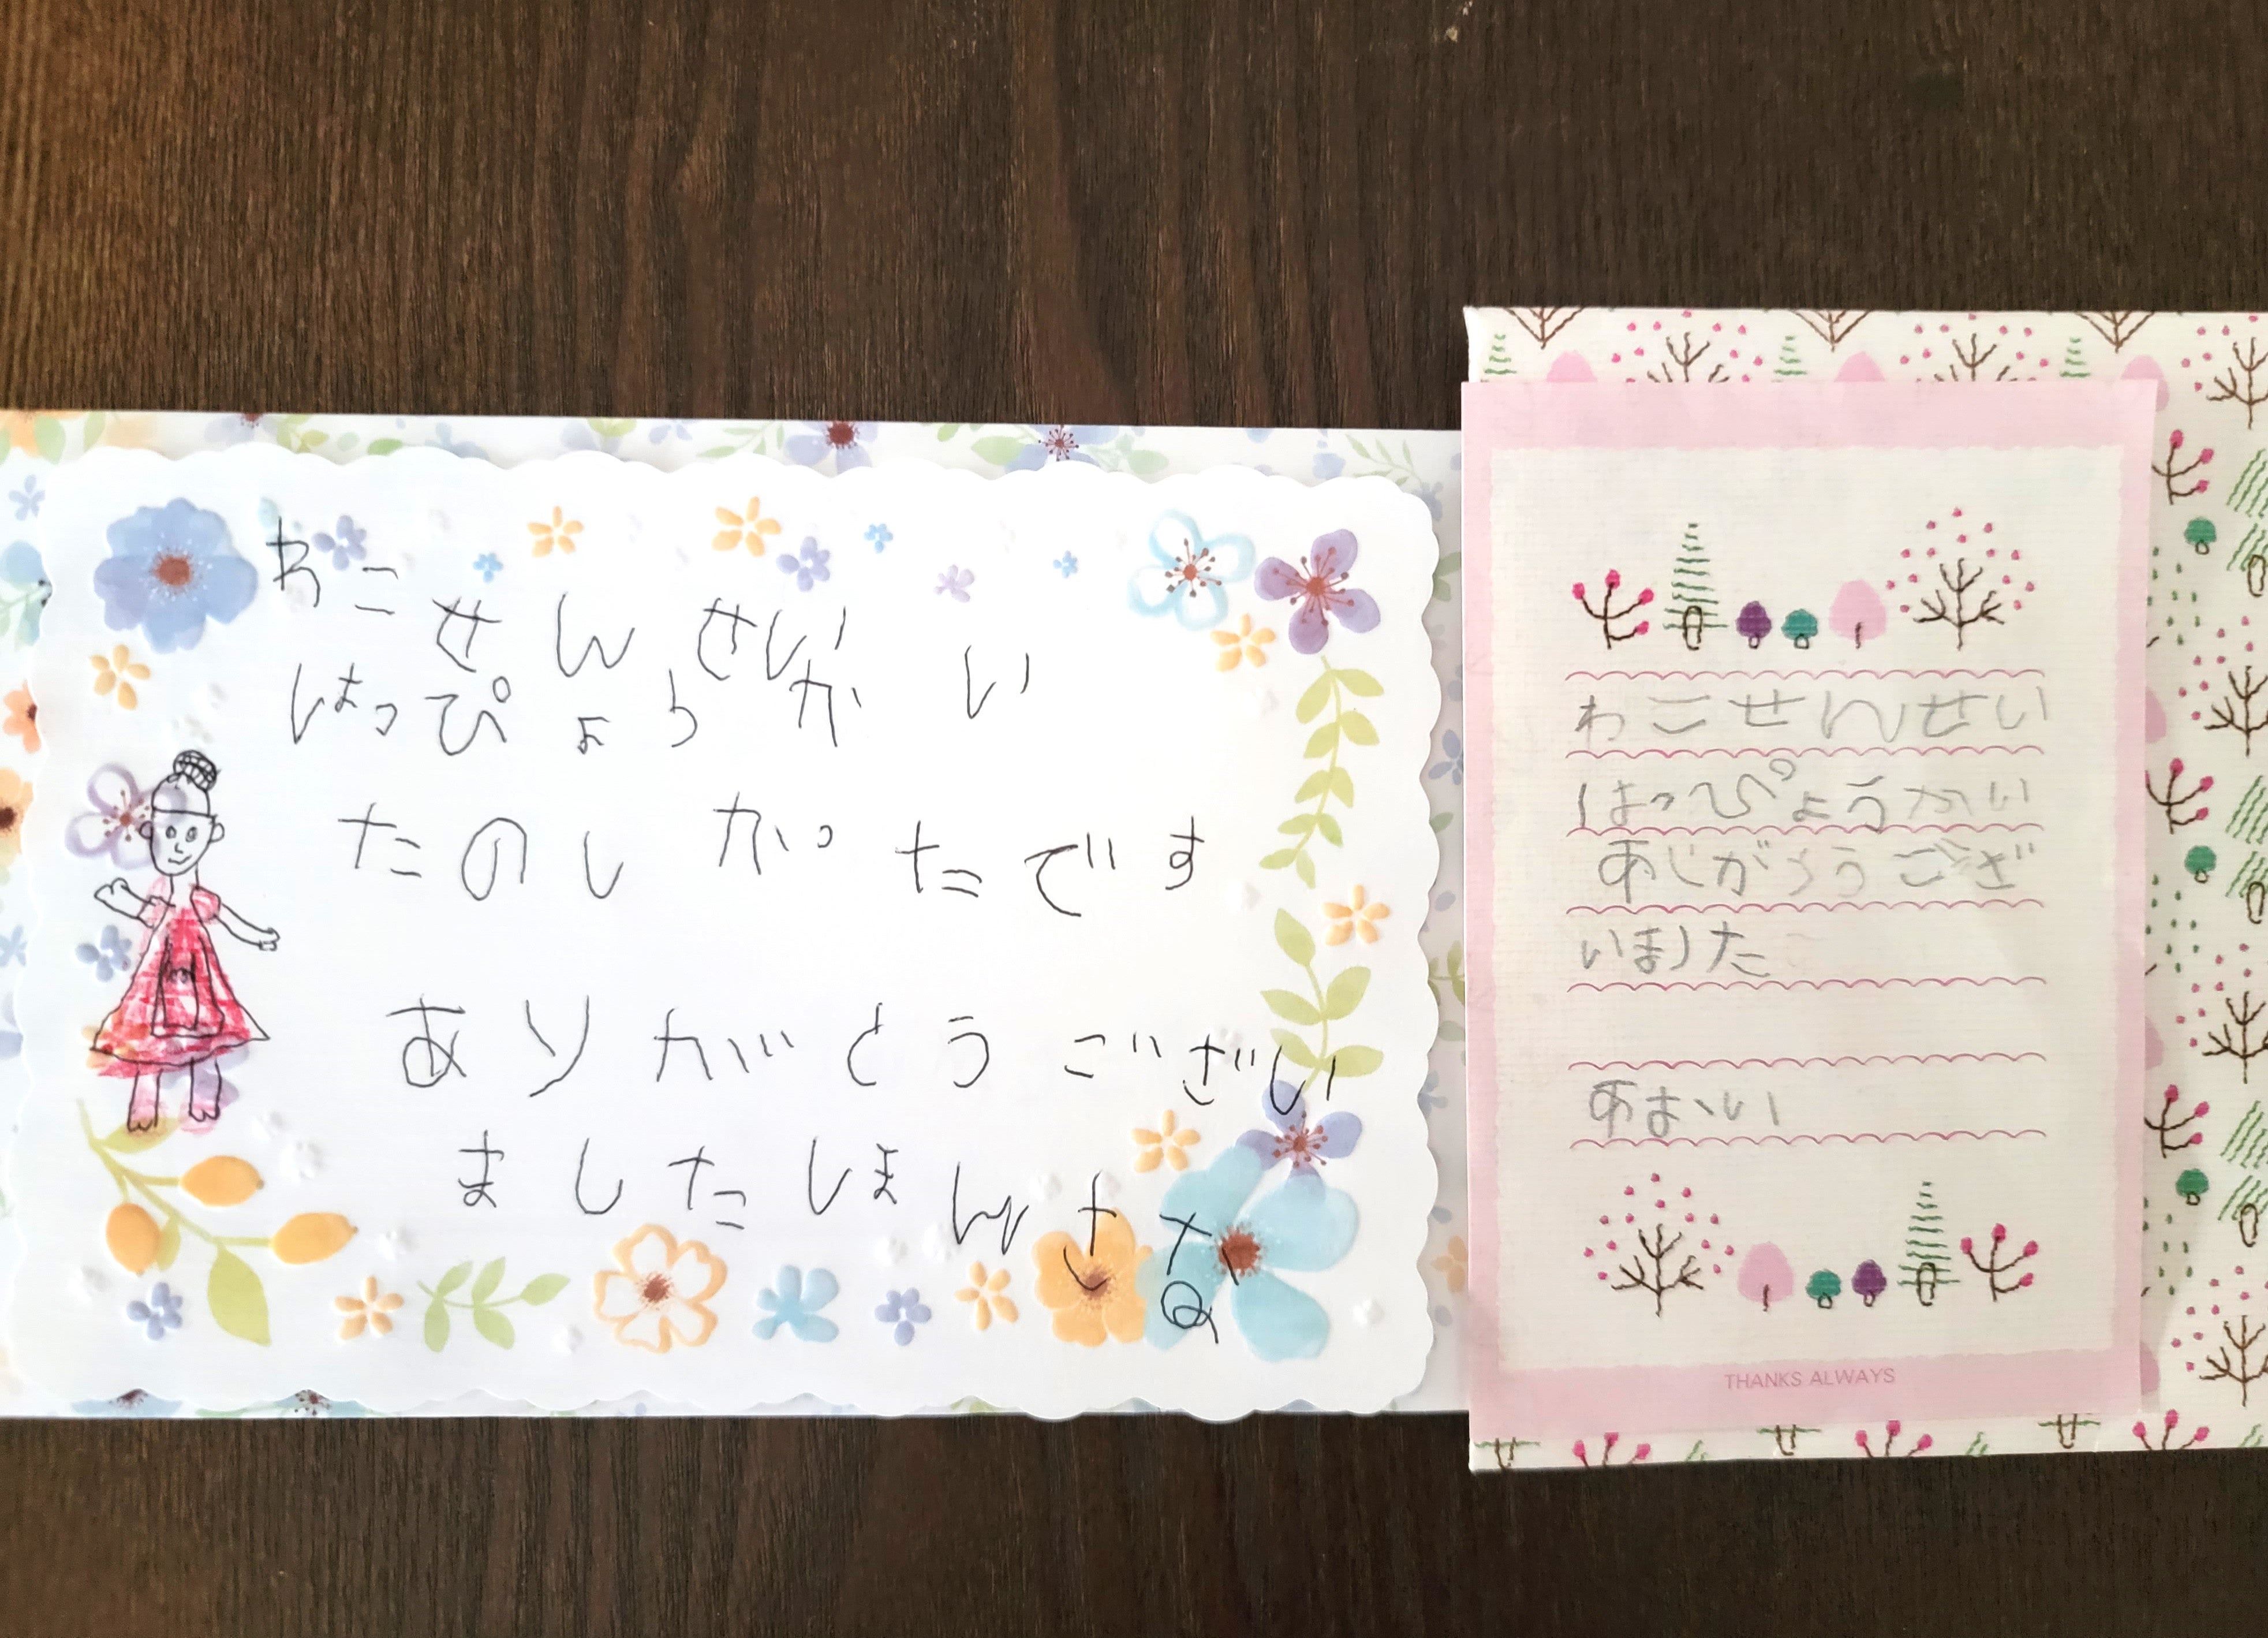 わこせんせい
はっぴょうかい
たのしかったです
ありがとうござい
ました
わこせんせい
はっぴょうかい
ありがとうござ
いました
あおい
THANKS ALWAYS